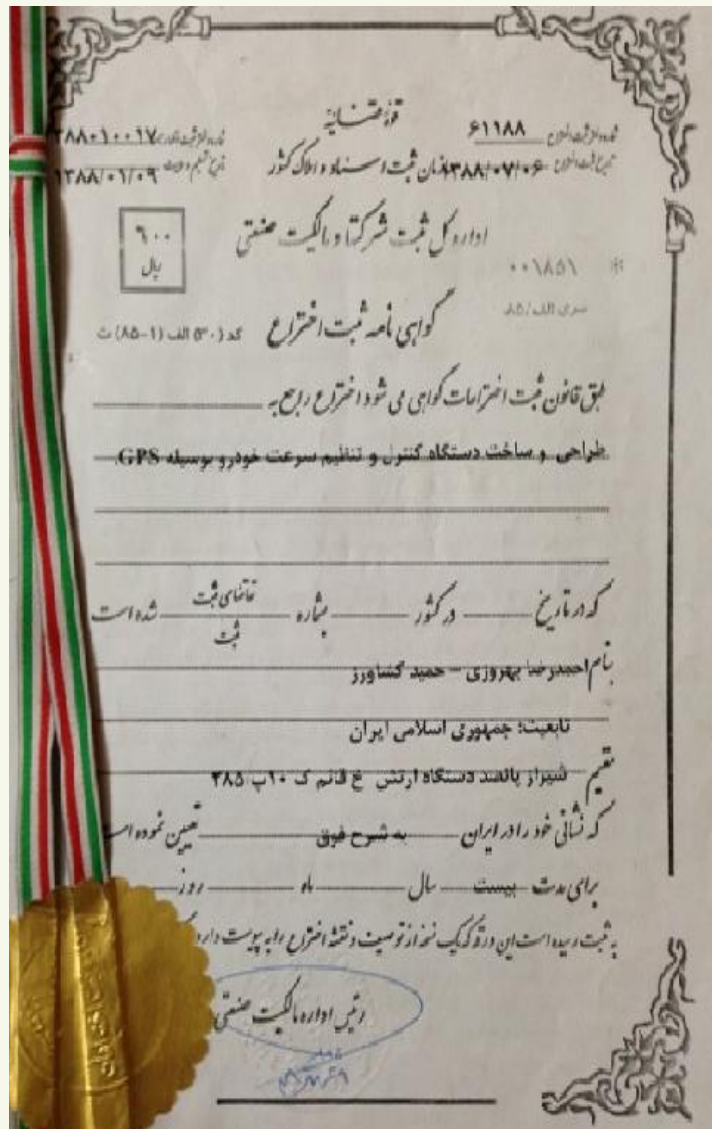 قوه قضائیه
شماره و تاریخ ثبت اختراع ۶۱۱۸۸
۱۳۸۸/۰۷/۰۶
سازمان ثبت اسناد و املاک کشور
۳۸۸۰۱۰۰۱۷
۱۳۸۸/۰۱/۰۹
اداره کل ثبت شرکتها و مالکیت صنعتی
ریال
۰۰۱۸۵۱
سری الف/۸۵
گواهی نامه ثبت اختراع
کد (۵۳۰ الف (۱-۸۵) ث
طبق قانون ثبت اختراعات گواهی می شود اختراع راجع به
طراحی و ساخت دستگاه کنترل و تنظیم سرعت خودرو بوسیله GPS.
که در تاریخ در کشور بشماره تقاضای ثبت ثبت شده است
بنام احمدرضا بهروزی – حمید کشاورز
تابعیت: جمهوری اسلامی ایران
مقیم شیراز پانصد دستگاه ارتش خ قائم ک ۱۰ پ ۳۸۵
که نشانی خود را در ایران به شرح فوق تعیین نموده است
برای مدت بیست سال ماه روز
به ثبت رسیده است این ورقه که یک نسخه از توصیف و نقشه اختراع را به پیوست دارد
رئیس اداره مالکیت صنعتی